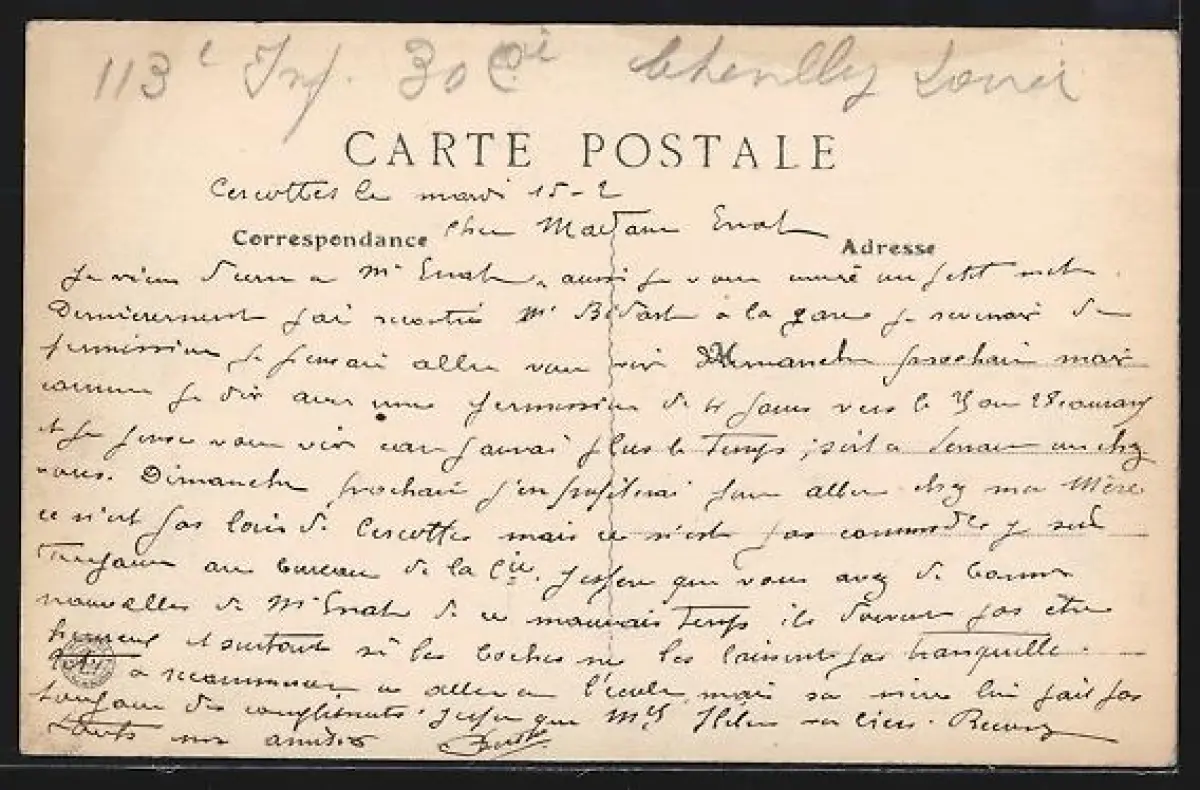 113e Inf. 30 Cie Louis
CARTE POSTALE
Cercottes le mardi 15-2
Correspondance
Adresse
Cher Madame Enat
Je viens d'ecrir a Mr Enat, aussi je vous un petit mot.
Dernierement j'ai rencontré Mr à la gare je revenais de
permission je pensai aller vous voir dimanche prochain mais
comme je dois avoir une permission de 4 jours vers le 28 courant
et je pense vous voir car j'aurai plus le temps, soit a ou chez
vous. Dimanche prochain j'en profiterai pour aller chez ma Mère
ce n'est pas loin de Cercottes mais ce n'est pas commode j suis
toujours au bureau de la Cie. J'espère que vous avez de bonnes
nouvelles de Mr Enat de ce mauvais temps ils doivent pas être
heureux et surtout si les boches ne les laissent pas tranquille.
a recommencer a aller a l'école, mais sa lui fait pas
toujours des compliments. J'espère que va bien. Recevez
toutes mes amitiés